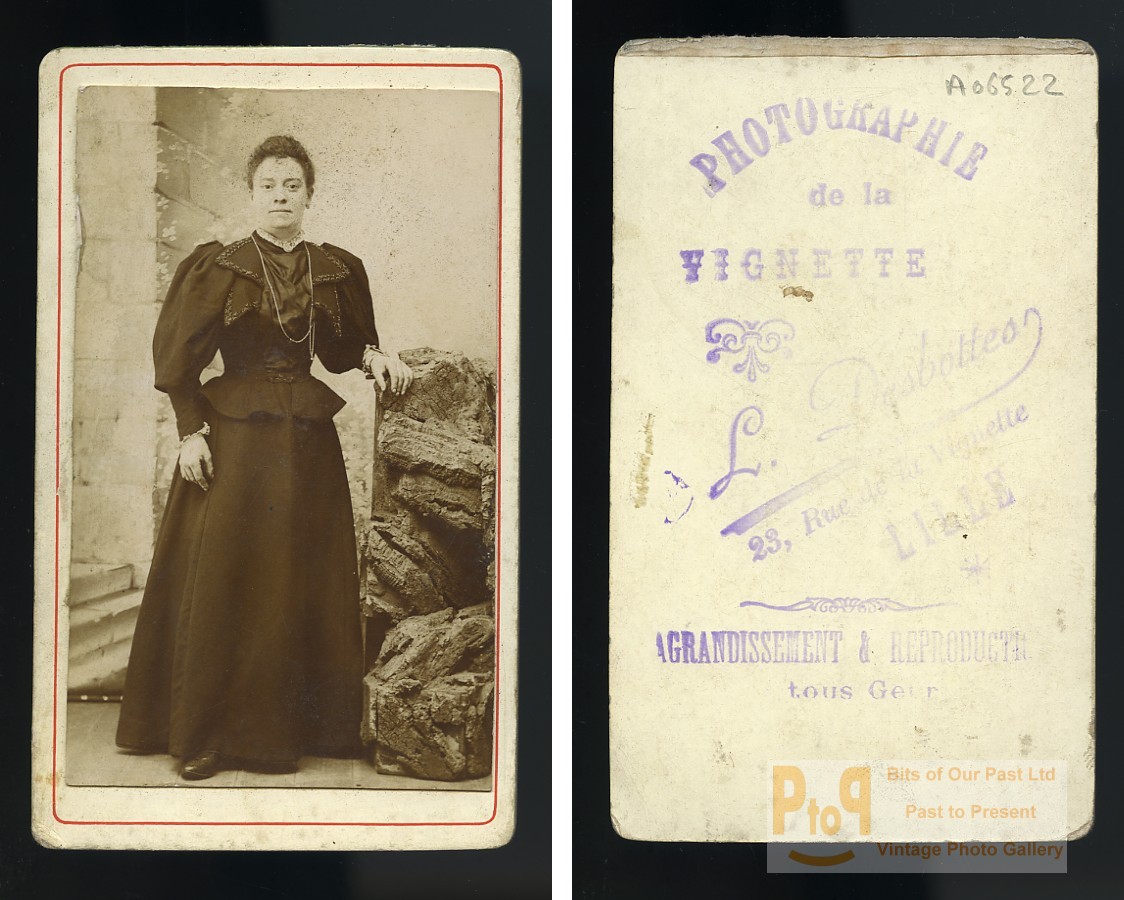 A06522
PHOTOGRAPHIE
de la
VIGNETTE
L. Desbottes
23, Rue de la Vignette
LILLE
AGRANDISSEMENT & REPRODUCTI
tous Ge r
PtoP
Bits of Our Past Ltd
Past to Present
Vintage Photo Gallery